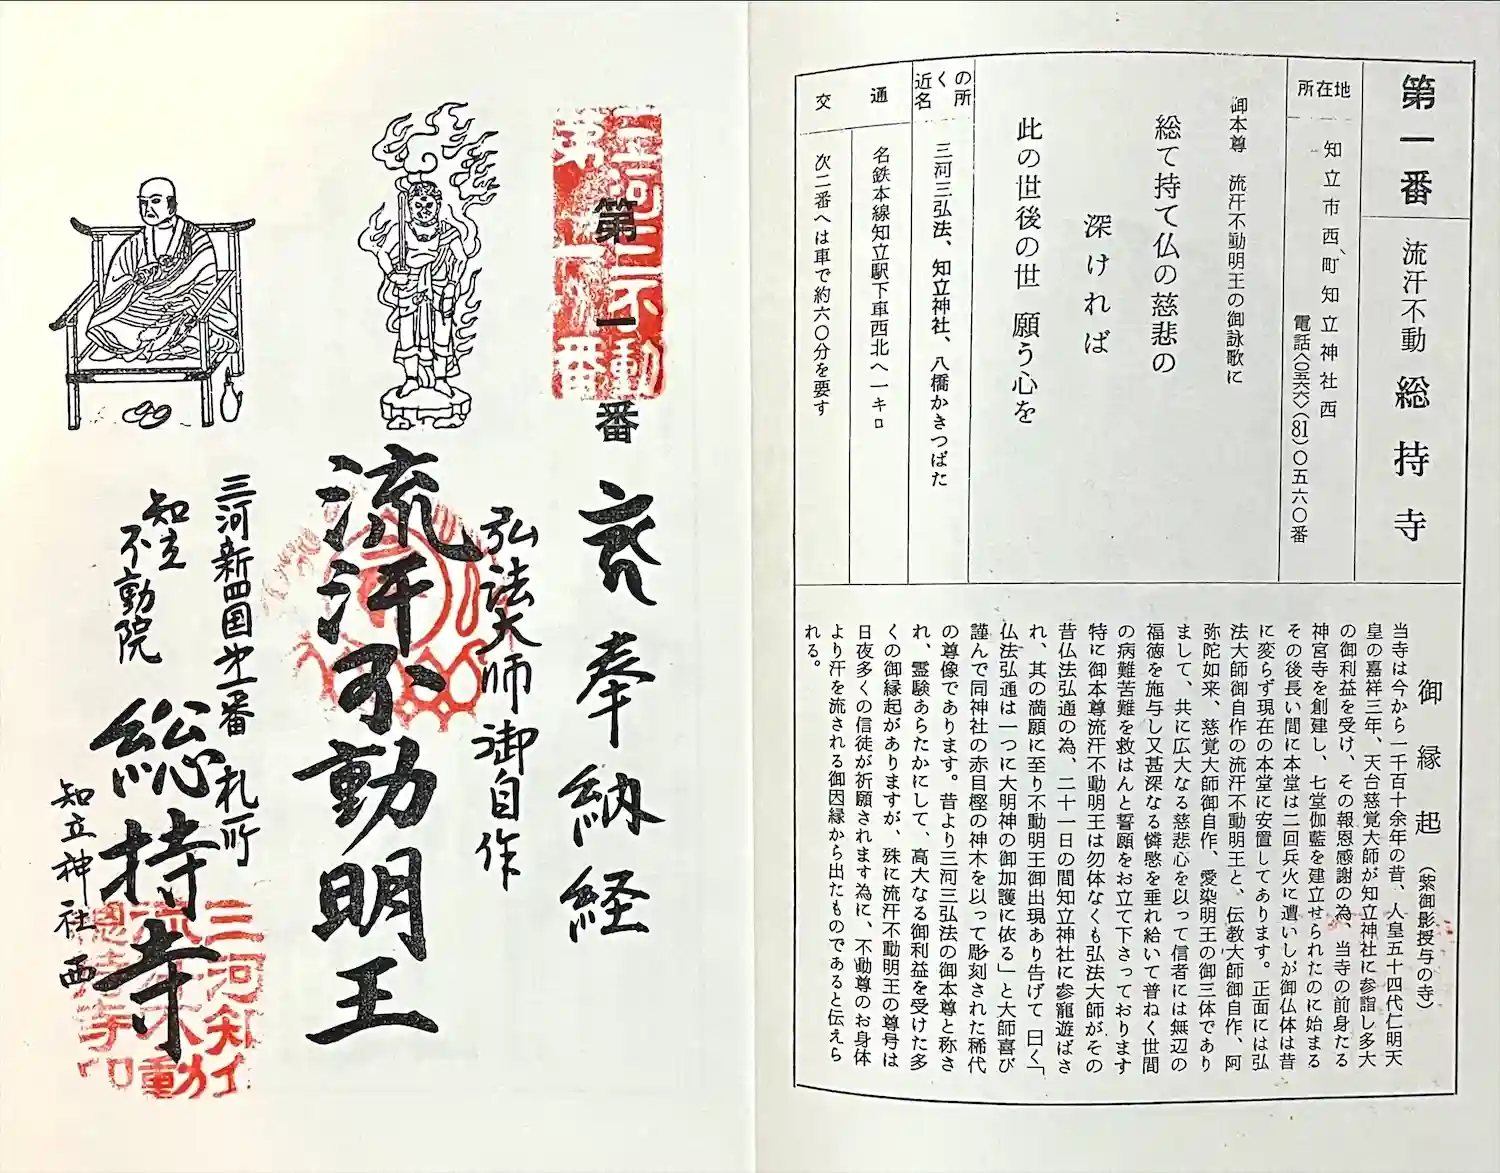 第一番
流汗不動 総持寺
所在地
知立市西町知立神社西
電話〈〇五六六〉(81)〇五六〇番
御本尊 流汗不動明王の御詠歌に
総て持て仏の慈悲の
深ければ
此の世後の世 願う心を
近くの名所
三河三弘法、知立神社、八橋かきつばた
交通
名鉄本線知立駅下車西北へ一キロ
次二番へは車で約六〇分を要す
御縁起(紫御影授与の寺)
当寺は今から一千百十余年の昔、人皇五十四代仁明天
皇の嘉祥三年、天台慈覚大師が知立神社に参詣し多大
の御利益を受け、その報恩感謝の為、当寺の前身たる
神宮寺を創建し、七堂伽藍を建立せられたのに始まる
その後長い間に本堂は二回兵火に遭いしが御仏体は昔
に変らず現在の本堂に安置してあります。正面には弘
法大師御自作の流汗不動明王と、伝教大師御自作、阿
弥陀如来、慈覚大師御自作、愛染明王の御三体であり
まして、共に広大なる慈悲心を以って信者には無辺の
福徳を施与し又甚深なる憐愍を垂れ給いて普ねく世間
の病難苦難を救はんと誓願をお立て下さっております
特に御本尊流汗不動明王は勿体なくも弘法大師がその
昔仏法弘通の為、二十一日の間知立神社に参寵遊ばさ
れ、其の満願に至り不動明王御出現あり告げて曰く「
仏法弘通は一つに大明神の御加護に依る」と大師喜び
謹んで同神社の赤目樫の神木を以って彫刻された稀代
の尊像であります。昔より三河三弘法の御本尊と称さ
れ、霊験あらたかにして、高大なる御利益を受けた多
くの御縁起がありますが、殊に流汗不動明王の尊号は
日夜多くの信徒が祈願されます為に、不動尊のお身体
より汗を流される御因縁から出たものであると伝えら
れる。
三河三不動
第一番
第一番
奉納経
弘法大師御自作
流汗不動明王
三河新四国第一番札所
知立
不動院
総持寺
知立神社西
三河知立
流汗不動
總持寺印